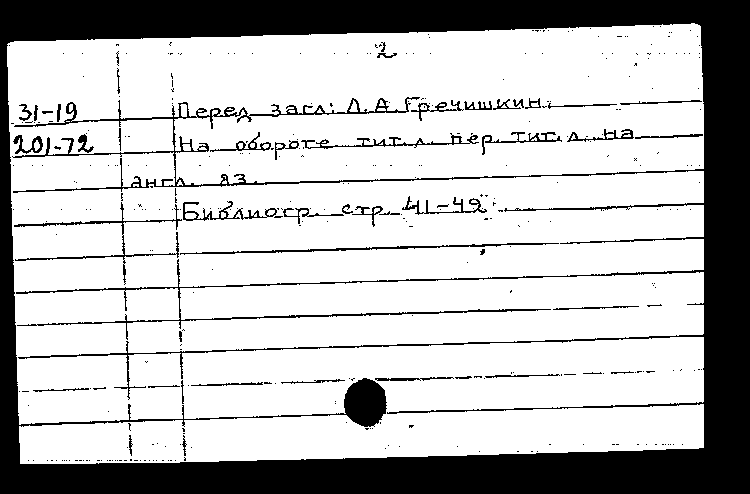 2
31-19 Перед загл: Л.А.Гречишкин.
201-72 На обороте тит.л. пер. тит.л. на
англ. яз.
Библиогр. стр. 41-49